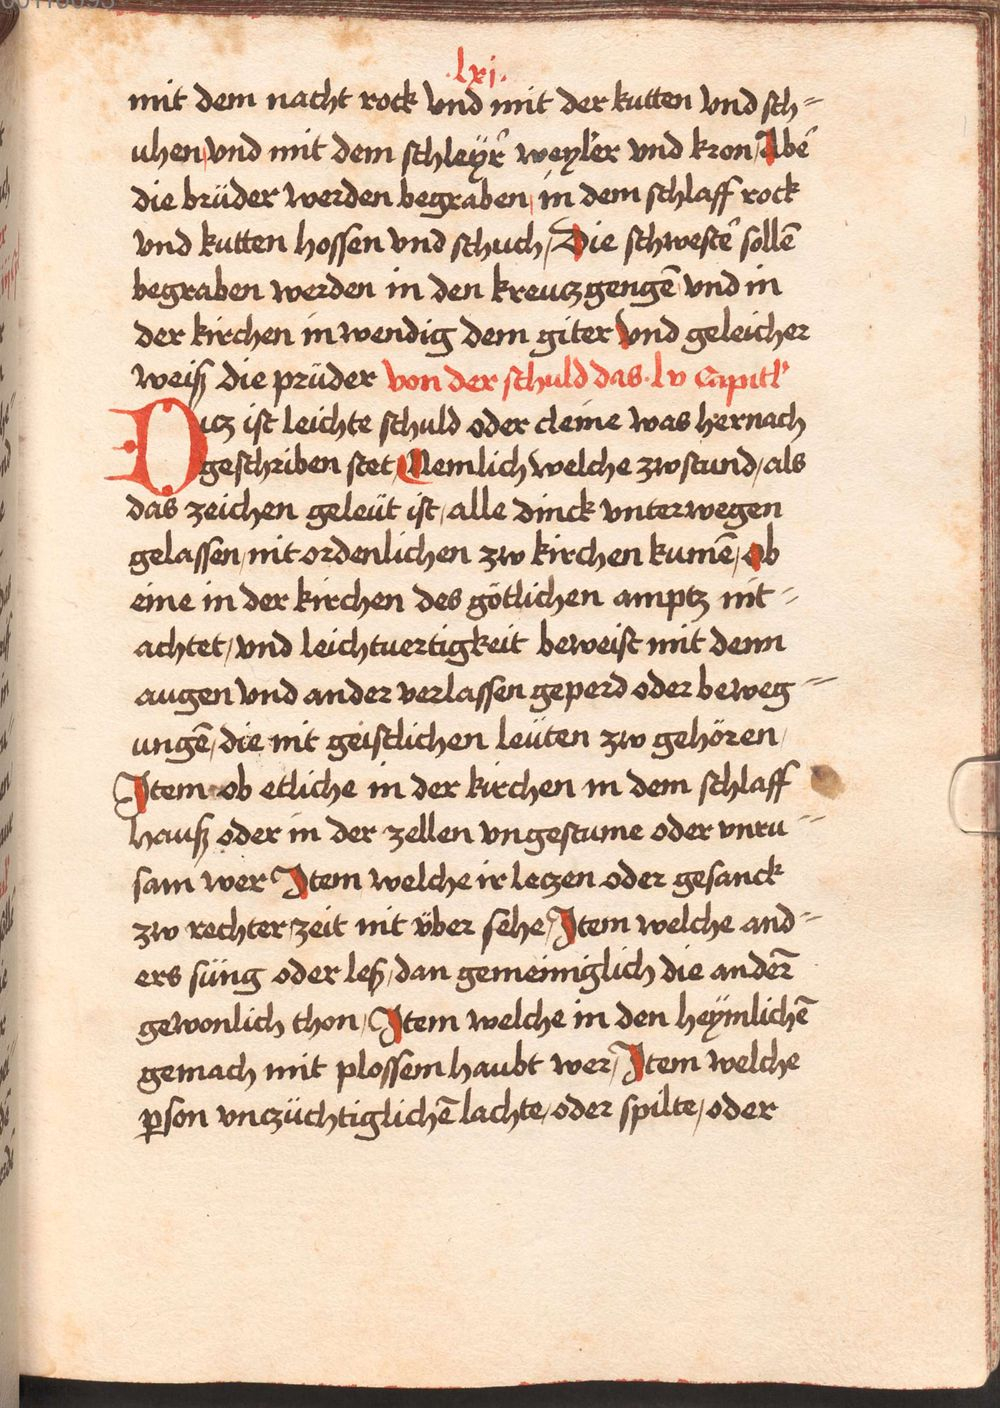 .lxj.
mit dem nacht rock vnd mit der kutten vnd sch=
uhen vnd mit dem schleÿr̄ weyler vnd kron / Abē
die brüder werden begraben in dem schlaff rock
vnd kutten hossen vnd schuch / Die schwestē sollē
begraben werden in den kreuczgengē vnd in
der kirchen inwendig dem giter vnd geleicher
weiß die prüder von der schuld das · lv Capitl'
Dicz ist leichte schuld oder cleine was hernach
geschriben stet / Nemlich welche zwstund / als
das zeichen geleüt ist / alle dinck vnterwegen
gelassen / nit ordenlichen zw kirchen kumē / ob
eine in der kirchen des götlichen amptz nit =
achtet / vnd leichtuertigkeit beweist mit denn
augen vnd ander verlassen geperd oder beweg =
ungē / die nit geistlichen leüten zw gehören /
Item ob etliche in der kirchen in dem schlaff
hauß oder in der zellen vngestume oder vnru =
sam wer Item welche ir leczen oder gesanck
zw rechter zeit nit über sehe / Item welche and=
ers süng oder leß / dan gemeiniglich die ander̄
gewonlich thon / Item welche in den heÿmlichē
gemach mit plossem haubt wer / Item welche
ꝑson vnczüchtiglichē lachte / oder spilte / oder